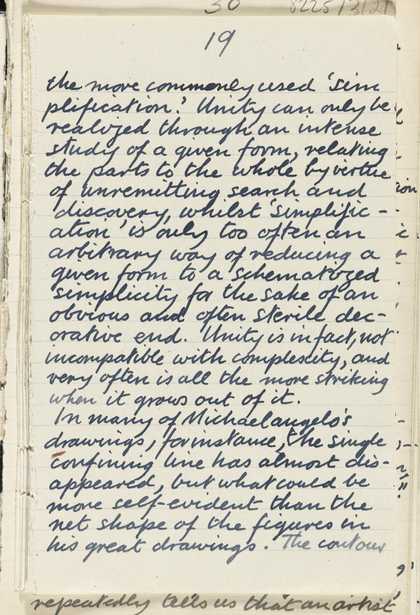 30 8225/3/21
19
the more commonly used 'sim
plification.' Unity can only be
realized through an intense
study of a given form, relating
the parts to the whole by virtue
of unremitting search and
discovery, whilst 'simplific-
ation' is only too often an
arbitrary way of reducing a
given form to a schematized
simplicity for the sake of an
obvious and often sterile dec-
orative end. Unity is in fact, not
incompatible with complexity, and
very often is all the more striking
when it grows out of it.
In many of Michaelangelo's
drawings, for instance, the single
confining line has almost dis-
appeared, but what could be
more self-evident than the
net shape of the figures in
his great drawings. The contour
repeatedly tells us that an artist